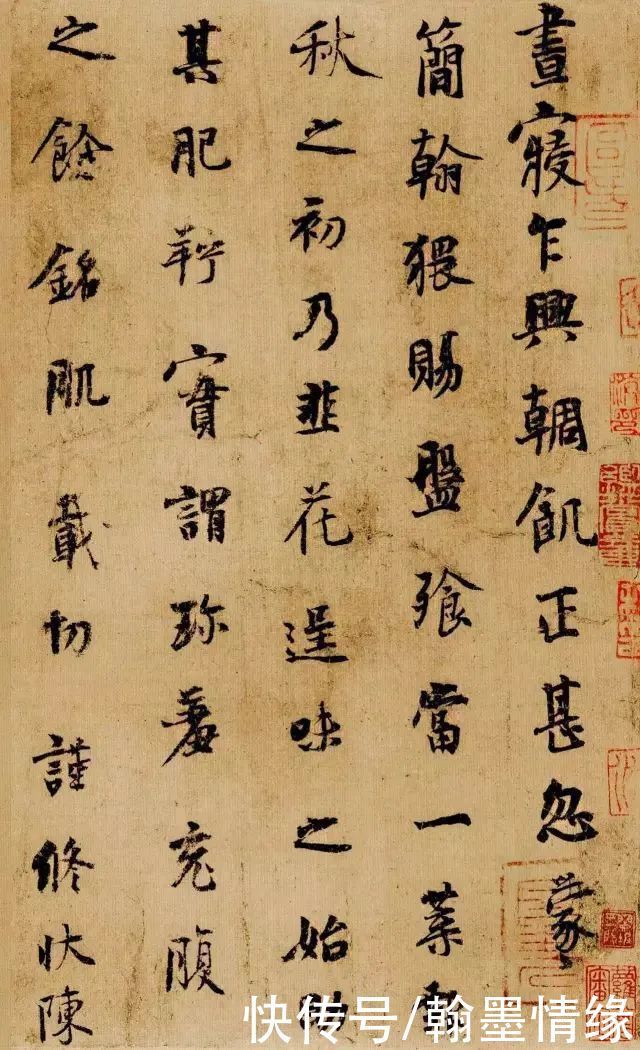 晝寢乍興朝飢正甚忽蒙
簡翰猥賜盤飧當一葉報
秋之初乃韭花逞味之始
其肥羜實謂珍羞充腹
之餘銘肌載切謹修狀陳
快传号/翰墨情缘